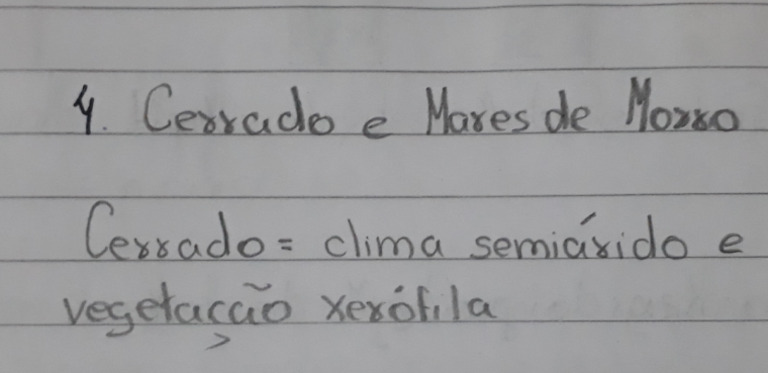 4. Cerrado e Mares de Morro
Cerrado = clima semiárido e
vegetação xerófila